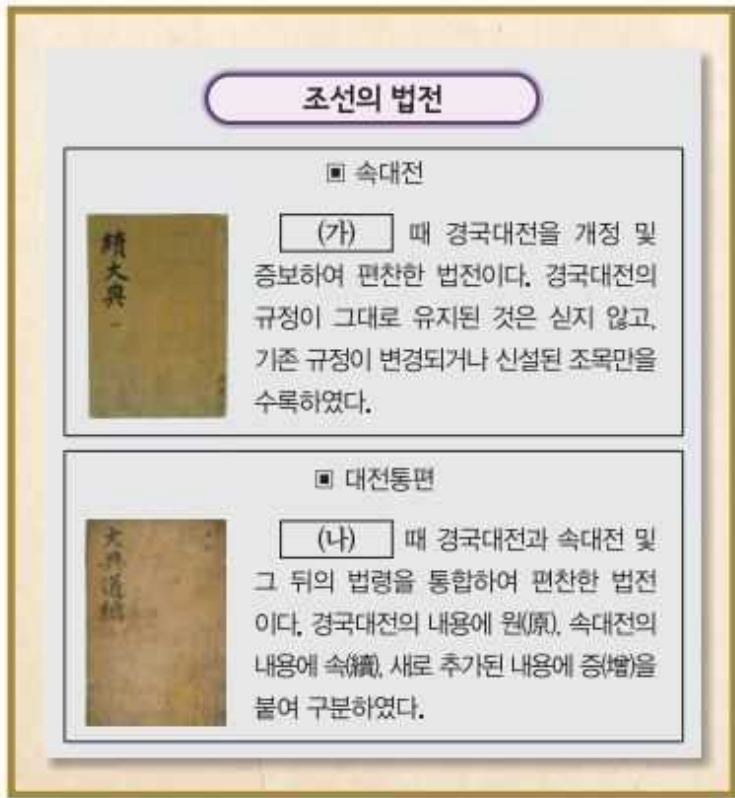 조선의 법전
▣ 속대전
續大典 一
(가) 때 경국대전을 개정 및
증보하여 편찬한 법전이다. 경국대전의
규정이 그대로 유지된 것은 싣지 않고,
기존 규정이 변경되거나 신설된 조목만을
수록하였다.
▣ 대전통편
大典通編
(나) 때 경국대전과 속대전 및
그 뒤의 법령을 통합하여 편찬한 법전
이다. 경국대전의 내용에 원(原), 속대전의
내용에 속(續), 새로 추가된 내용에 증(增)을
붙여 구분하였다.